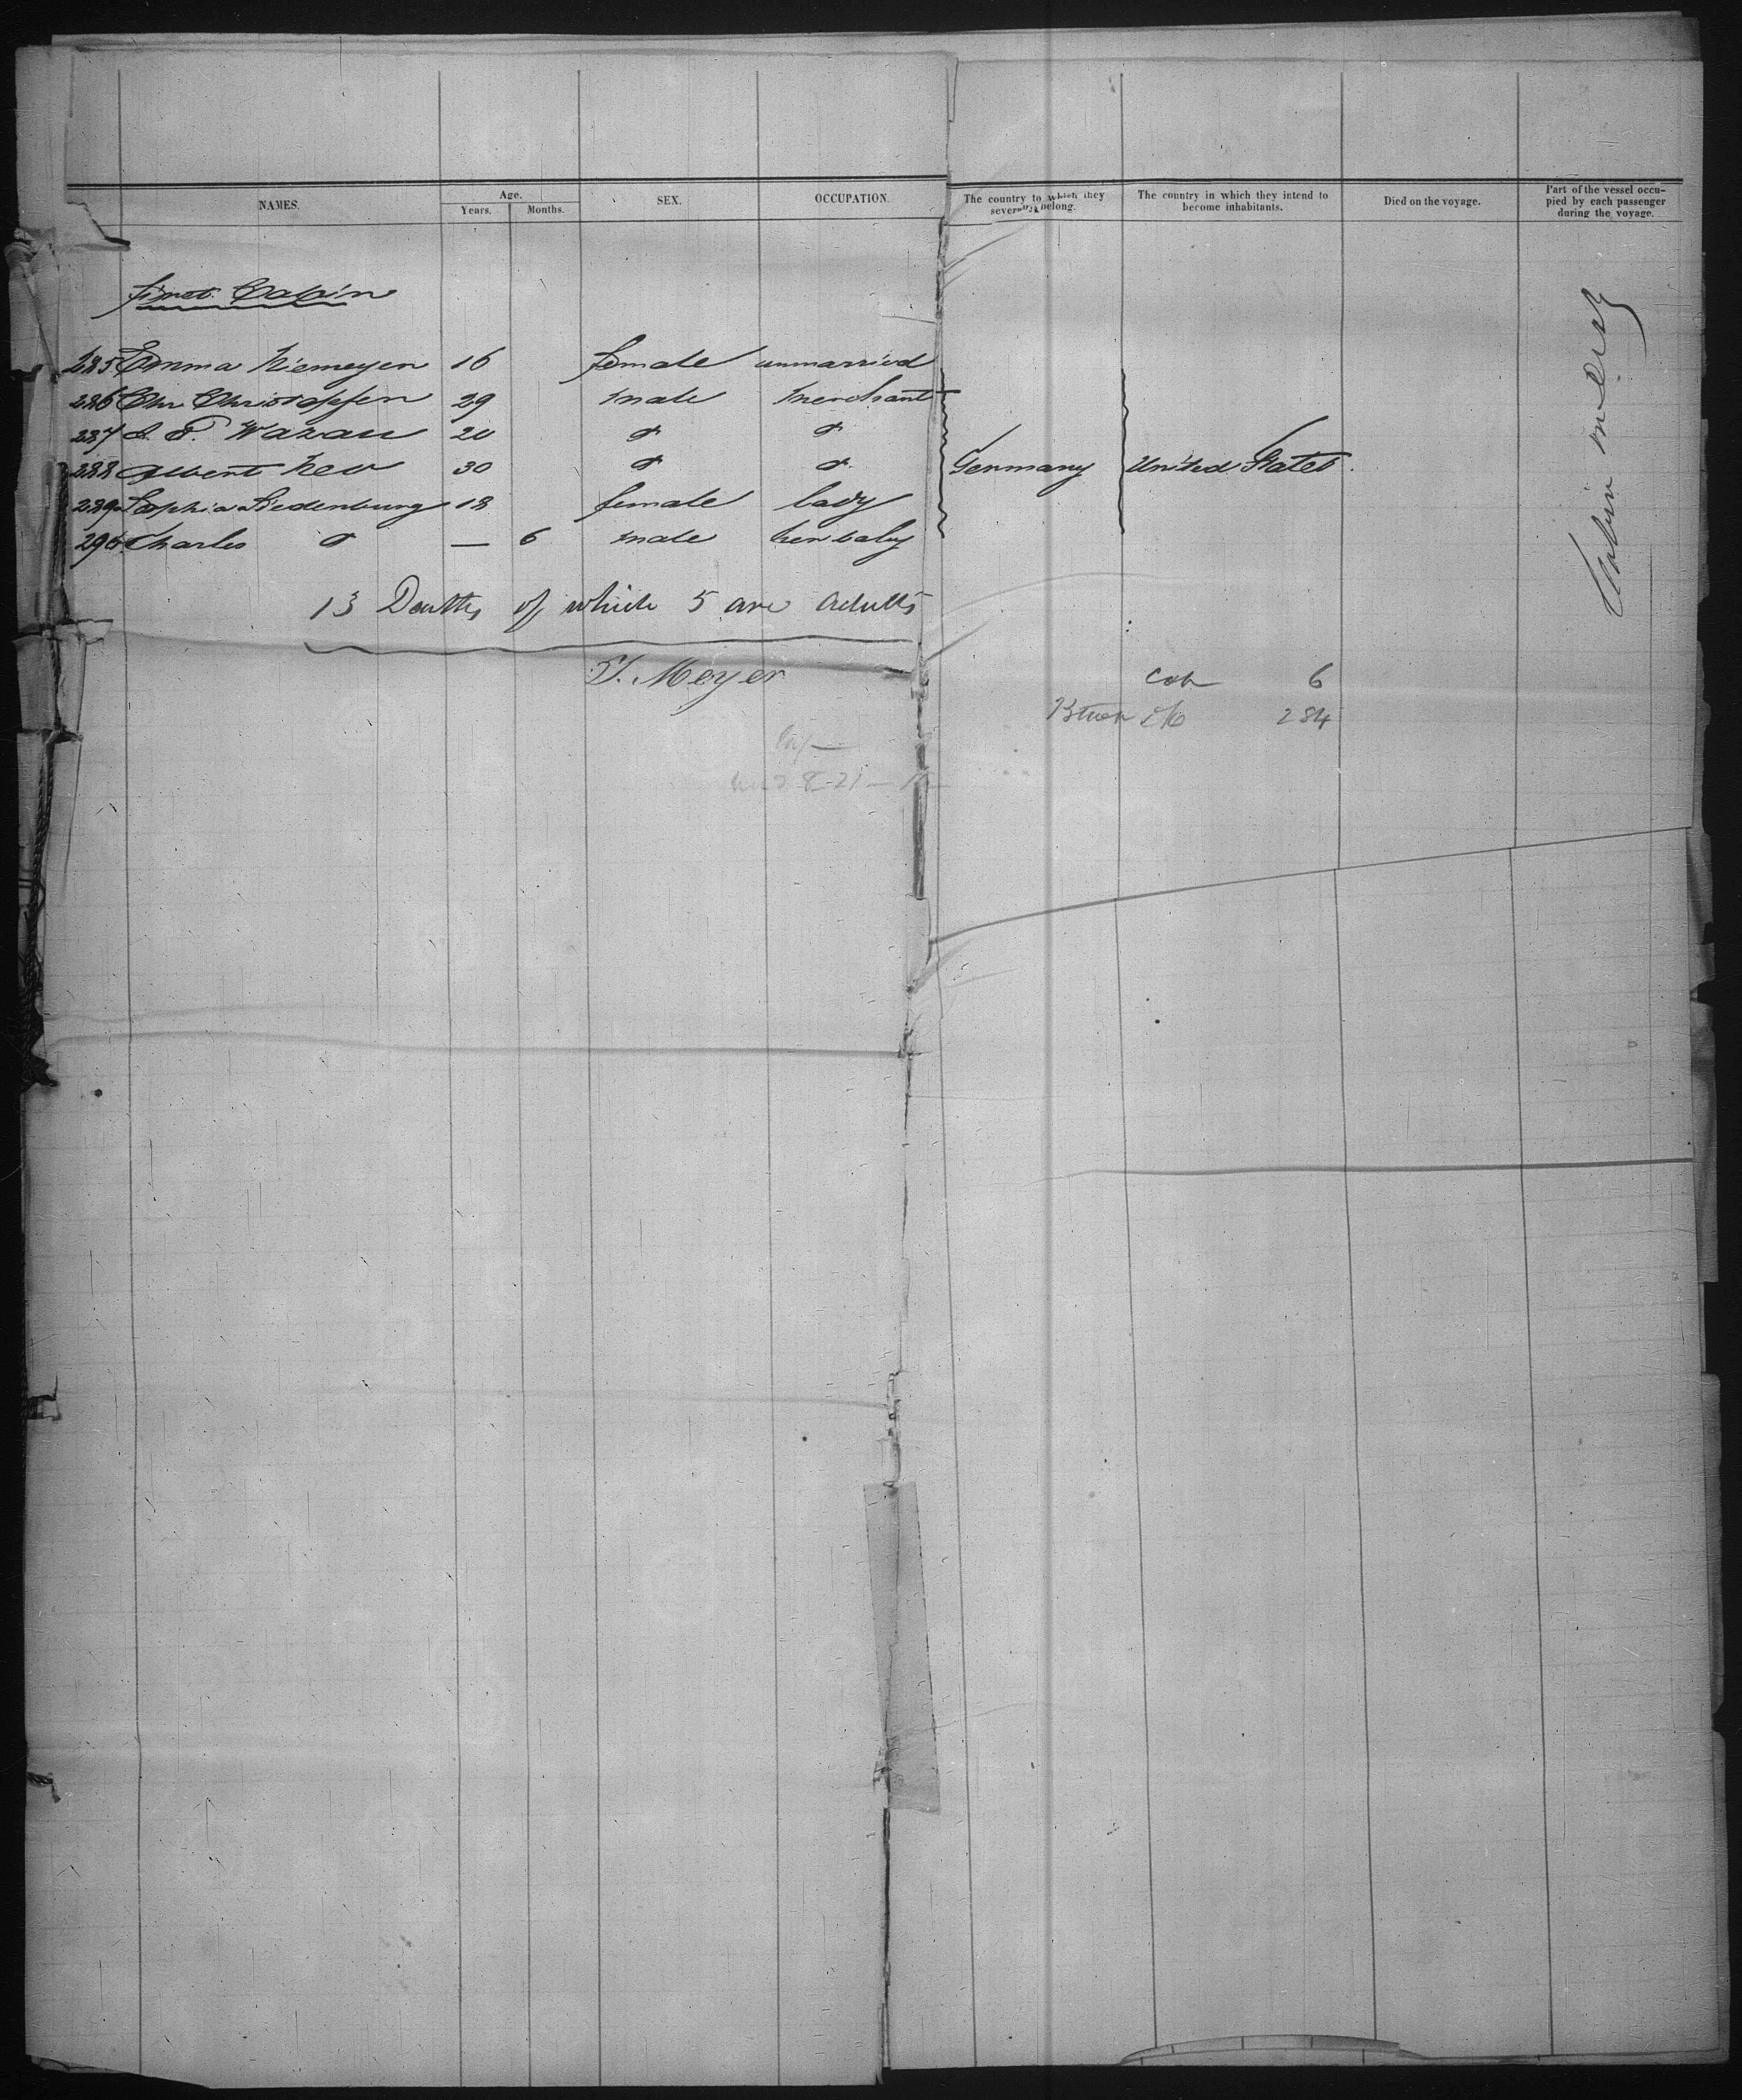 NAMES. Age. SEX. OCCUPATION. The country to which they severally belong. The country in which they intend to become inhabitants. Died on the voyage. Part of the vessel occupied by each passenger during the voyage.
Years. Months.
First Cabin
285 Emma Niemeyer 16 female unmarried
286 Chr. Christoffen 29 male merchant
287 J. F. Waran 20 do do
288 Albert New 30 do do Germany United States.
289 Sophia Siedenburg 18 female lady
290 Charles do — 6 male her baby
13 Deaths of which 5 are adults
H. Meyer
Cab 6
284
Cabin